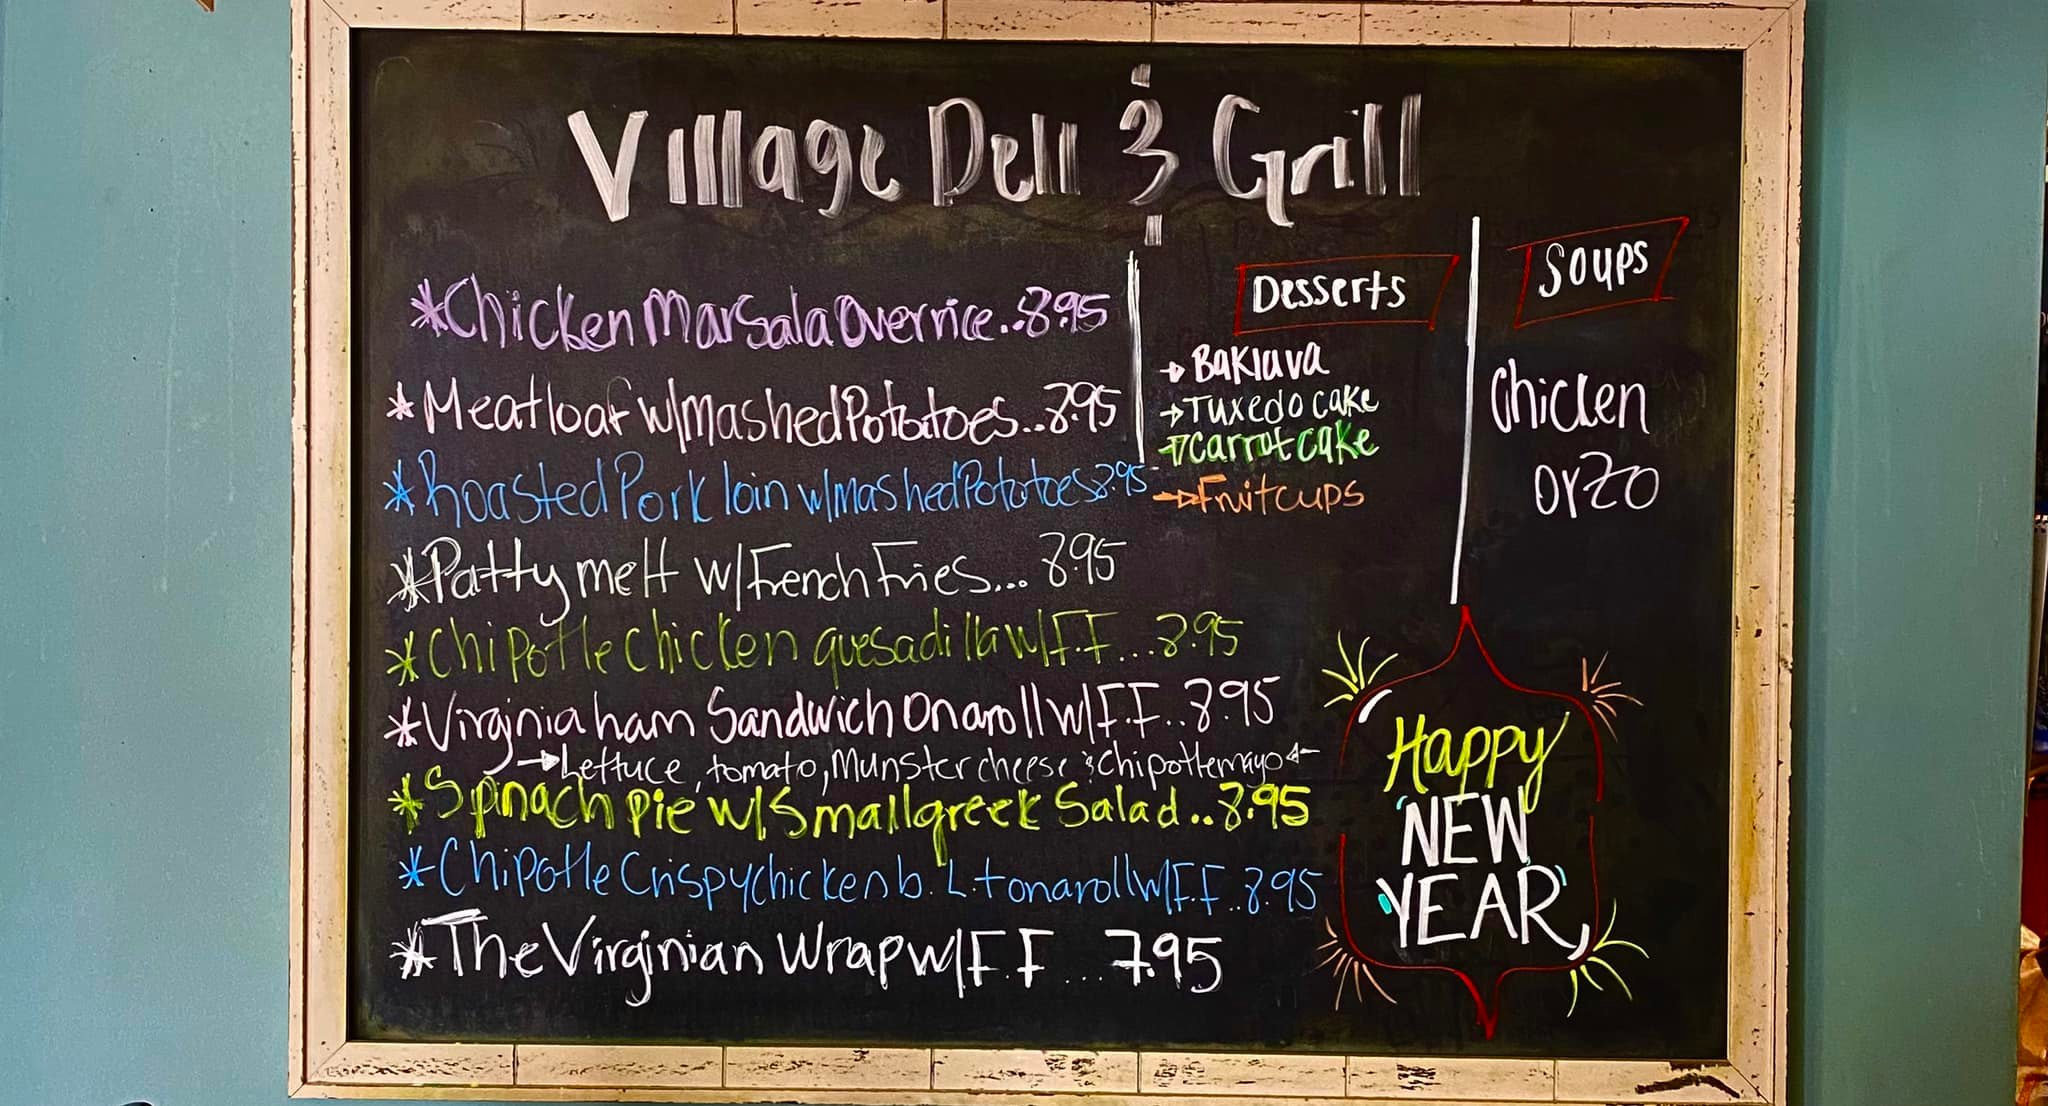 Village Deli & Grill
*Chicken Marsala Over rice..8.95
*Meatloaf w/mashed Potatoes..8.95
*Roasted Pork loin w/mashed Potatoes 8.95
*Patty melt w/French Fries... 8.95
*Chipotle Chicken quesadilla w/F.F...8.95
*Virginia ham Sandwich On a roll w/F.F..8.95
→Lettuce, tomato, Munster cheese & Chipotle mayo←
*Spinach Pie w/Small greek Salad..8.95
*Chipotle Crispy chicken b.L.t on a roll w/F.F..8.95
*The Virginian Wrap w/F.F...7.95
Desserts
→Baklava
→Tuxedo cake
→Carrot cake
→Fruit cups
Soups
Chicken
orzo
Happy
NEW
YEAR